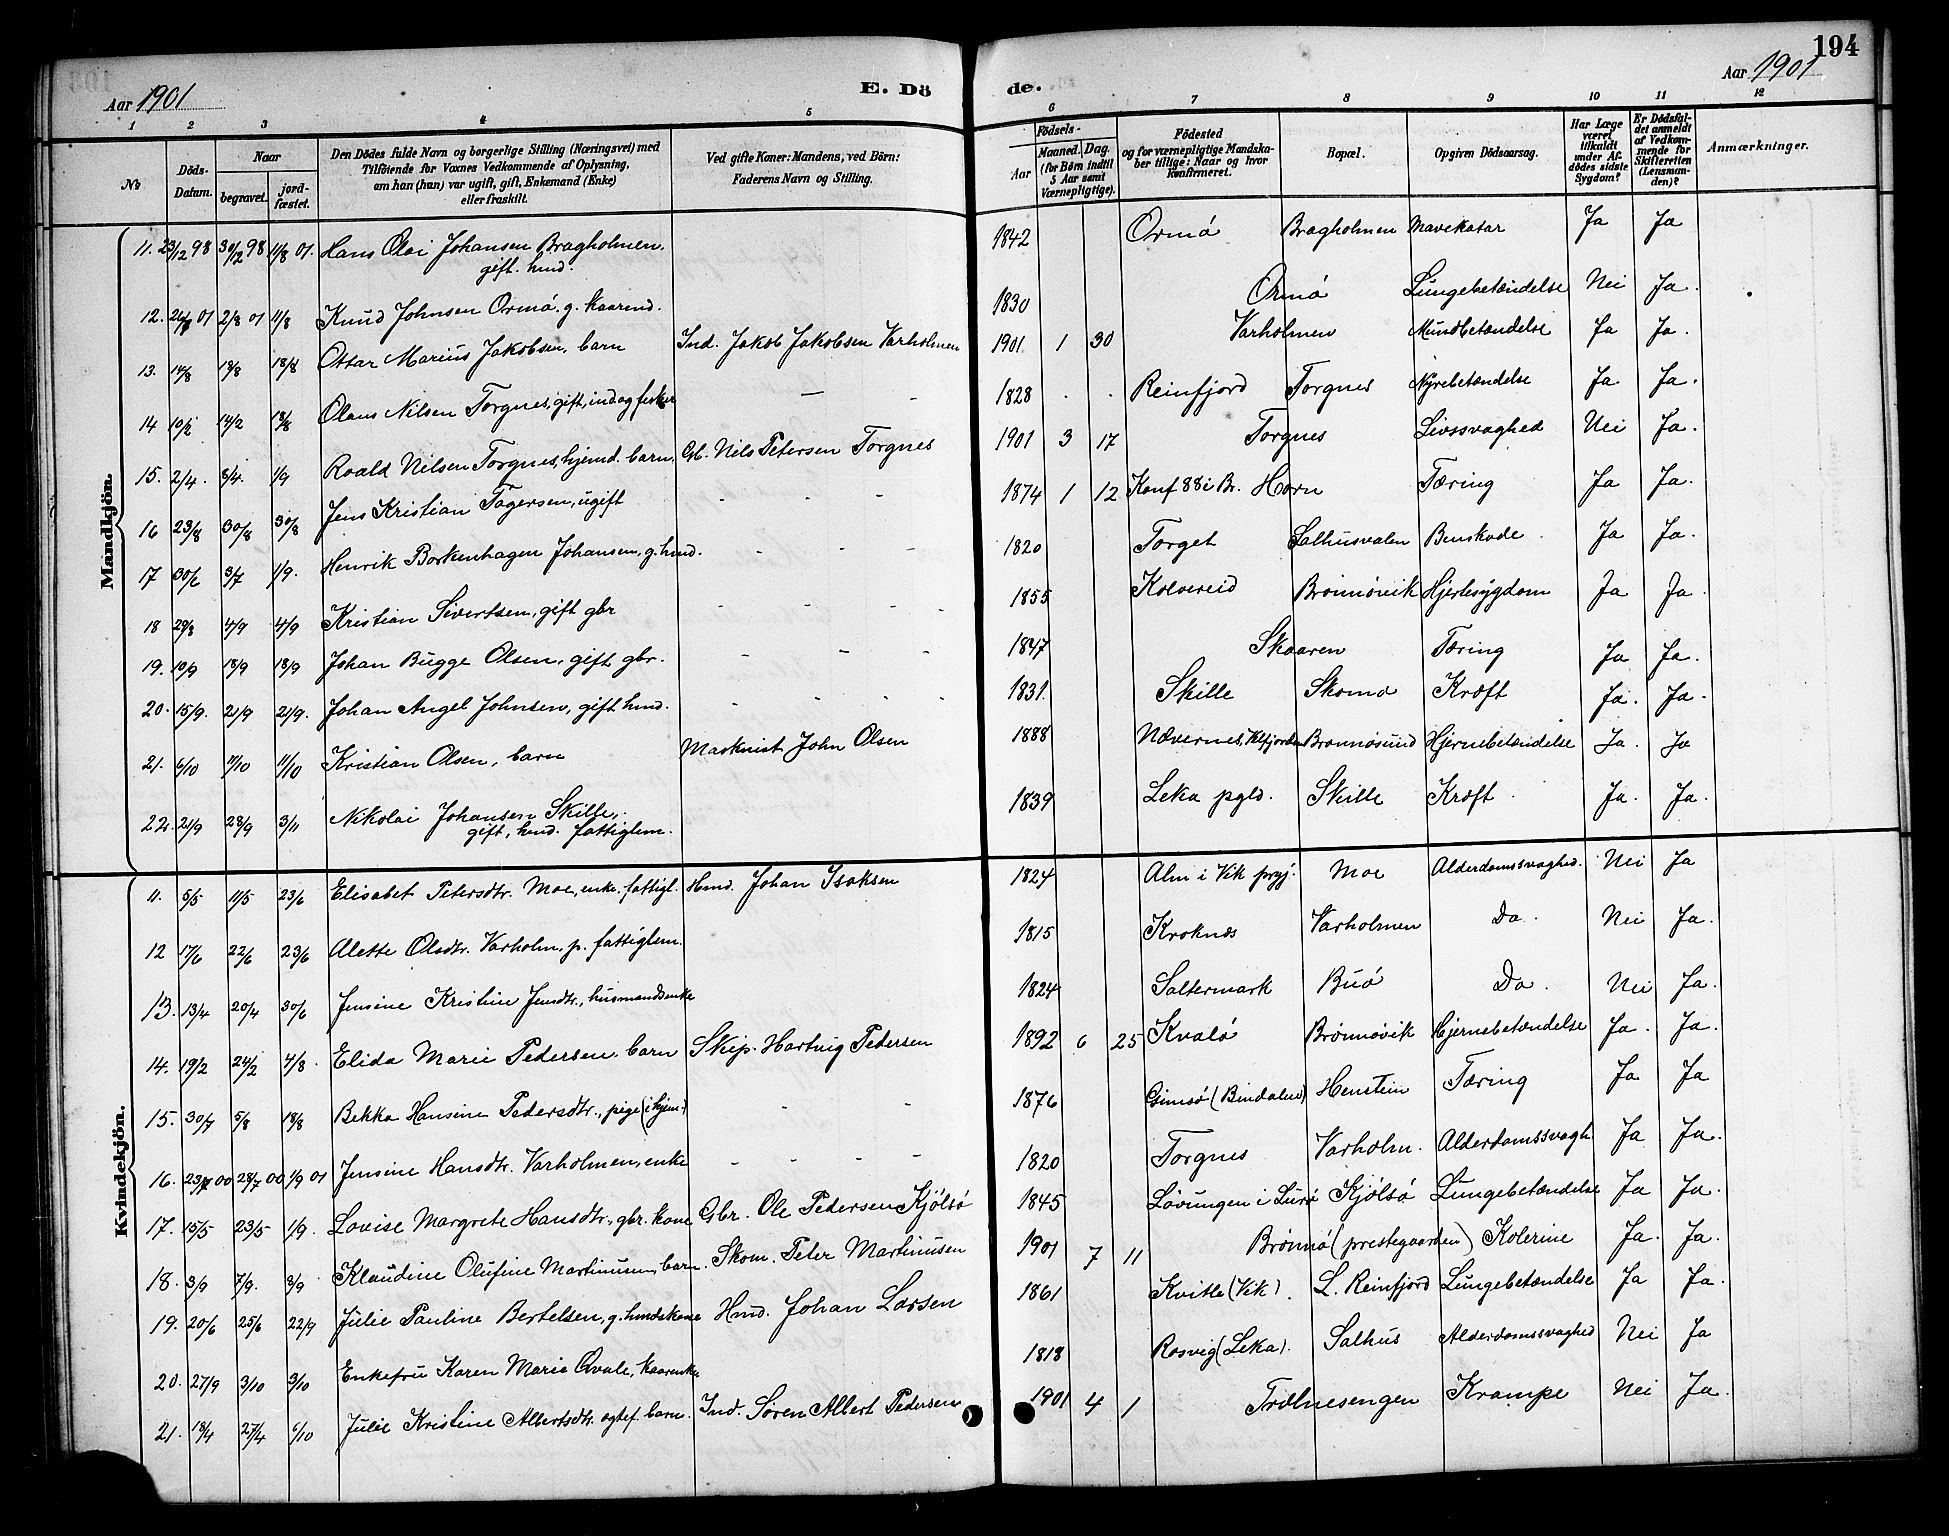 194
Aar 1901
E. Dö
de.
Aar 1901
1 2 3 4 5 6 7 8 9 10 11 12
№
Döds-Datum.
Naar
begravet.
jord-fæstet.
Den Dödes fulde Navn og borgerlige Stilling (Næringsvei) med
Tilföiende for Voxnes Vedkommende af Oplysning,
om han (hun) var ugift, gift, Enkemand (Enke)
eller fraskilt.
Ved gifte Koner: Mandens, ved Börn:
Faderens Navn og Stilling.
Födsels-
Aar
Maaned. Dag.
(for Børn indtil
5 Aar samt
Værnepligtige).
Födested
og for værnepligtige Mandska-
ber tillige: Naar og hvor
Konfirmeret.
Bopæl.
Opgiven Dödsaarsag.
Har Læge
været
tilkaldt
under Af-
dödes sidste
Sygdom?
Er Dödsfal-
det anmeldt
af Vedkom-
mende for
Skifteretten
(Lensman-
den)?
Anmærkninger.
Mandkjön.
11. 23/12 98 30/12 98 11/8 01. Hans Olai Johansen Bragholmen, gift. hmd. 1842 Ormø Bragholmen Mavekatar Ja Ja
12. 2/8 01 11/8 Knud Johnsen Ormø. g. kaarmd. 1830 Ormø Lungebetændelse Nei Ja.
13. 14/8 18/8 18/8 Ottar Marius Jakobsen, barn Ind. Jakob Jakobsen Varholmen 1901 1 30 Varholmen Mundbetændelse Ja Ja.
14 10/2 14/2 18/8 Olaus Nilsen Torgnes, gift, ind og fisker — - 1828 . . Reinfjord Torgnes Nyrebetændelse Ja Ja.
15. 2/4. 8/4. 1/9 Roald Nilsen Torgnes, hjemd. barn. Gb. Nils Petersen Torgnes 1901 3 17 Torgnes Livssvaghed Nei Ja.
16 23/8 30/8 30/8 Jens Kristian Tagersen, ugift - - - 1874 1 12 Konf 88 i Br. Horn Tæring Ja Ja.
17 30/6 3/7 1/9. Henrik Borkenhagen Johansen, g. hmd. - - - 1820 Torget Salhusvalen Benskade. Ja Ja.
18 29/8 4/9 4/9 Kristian Sivertsen, gift gbr - - - - 1855 Kolvereid Brønnøvik Hjertesygdom Ja Ja.
19. 10/9 18/9 18/9 Johan Bugge Olsen, gift gbr. - - - 1847 Skaaren Tæring Ja Ja.
20. 15/9. 21/9 21/9. Johan Angel Johnsen, gift hmd. - - - - 1831. Skille Skomo Kræft Ja. Ja.
21. 6/10 11/10 11/10 Kristian Olsen, barn John Olsen 1888 Nævernes, Brønnøsund Hjernebetændelse Ja. Ja
22. 21/9 28/9 3/11 Nikolai Johansen Skille, gift, hmd. fattiglem. 1839 Leka pgld. Skille Kræft. Ja. Ja.
Kvindekjön.
11. 5/5 11/5 23/6 Elisabet Petersdtr. Moe, enke, fattigl. Hmd. Johan Isaksen 1824 Alm i Vik prgj. Moe Alderdomssvaghed. Nei Ja
12 17/6 22/6 23/6 Alette Olsdtr. Varholm, p. fattiglem. 1815 Kroknes Varholmen Do. Nei Ja.
13. 13/4 20/4 30/6 Jensine Kristine Jensdtr., husmandsenke 1824 Saltermark Buø Do. Nei Ja.
14. 19/2 24/2 4/8. Elida Marie Pedersen, barn Skip. Hartvig Pedersen 1892 6 25 Kvalø Brønnøvik Hjernebetændelse Ja. Ja.
15. 30/7 5/8 18/8 Bekka Hansine Pedersdtr., pige (i hjem-) - - 1876 Gimsø (Bindalen) Henstein Tæring Ja Ja
16. 23/7 00 28/7 00 1/9 01 Jensine Hansdtr. Varholmen, enke - - - - 1820 Torgnes Varholm. Alderdomssvagh Ja Ja.
17. 15/5 23/5 1/9. Lovise Margrete Hansdtr., gbr. kone Gbr. Ole Pedersen Kjølsø 1845 Løvungen i Lurø Kjølsø Lungebetændelse Ja Ja.
18. 3/9 7/9. 8/9 Klaudine Olufine Martinusen, barn. Skom. Peter Martinusen 1901 7 11 Brønnø (prestegaarden) Kolerine Ja. Ja.
19. 20/6 25/6 22/9 Julie Pauline Bertelsen, g. hmdskone Hmd. Johan Larsen 1861 Kvitle (Vik). L. Reinfjord Lungebetændelse Ja Ja.
20. 27/9 3/10 3/10 Enkefru Karen Marie Qvale, kaarenke 1818 Rosvig (Leka). Salhus Alderdomssvaghed Nei Ja
21. 18/4 27/4 6/10 Julie Kristine Albertsdtr. ogtef. barn. Ind. Søren Albert Pedersen 1901 4 1 Trælnesengen Krampe Nei Ja.